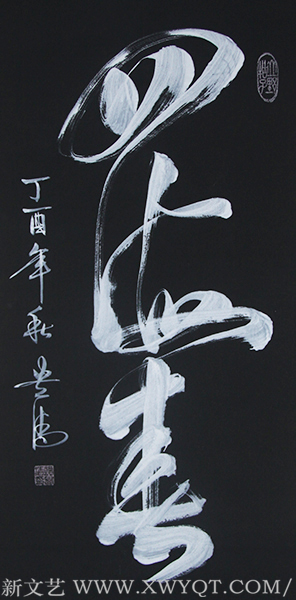 四海春
丁酉年秋
新文艺 WWW.XWYQT.COM/